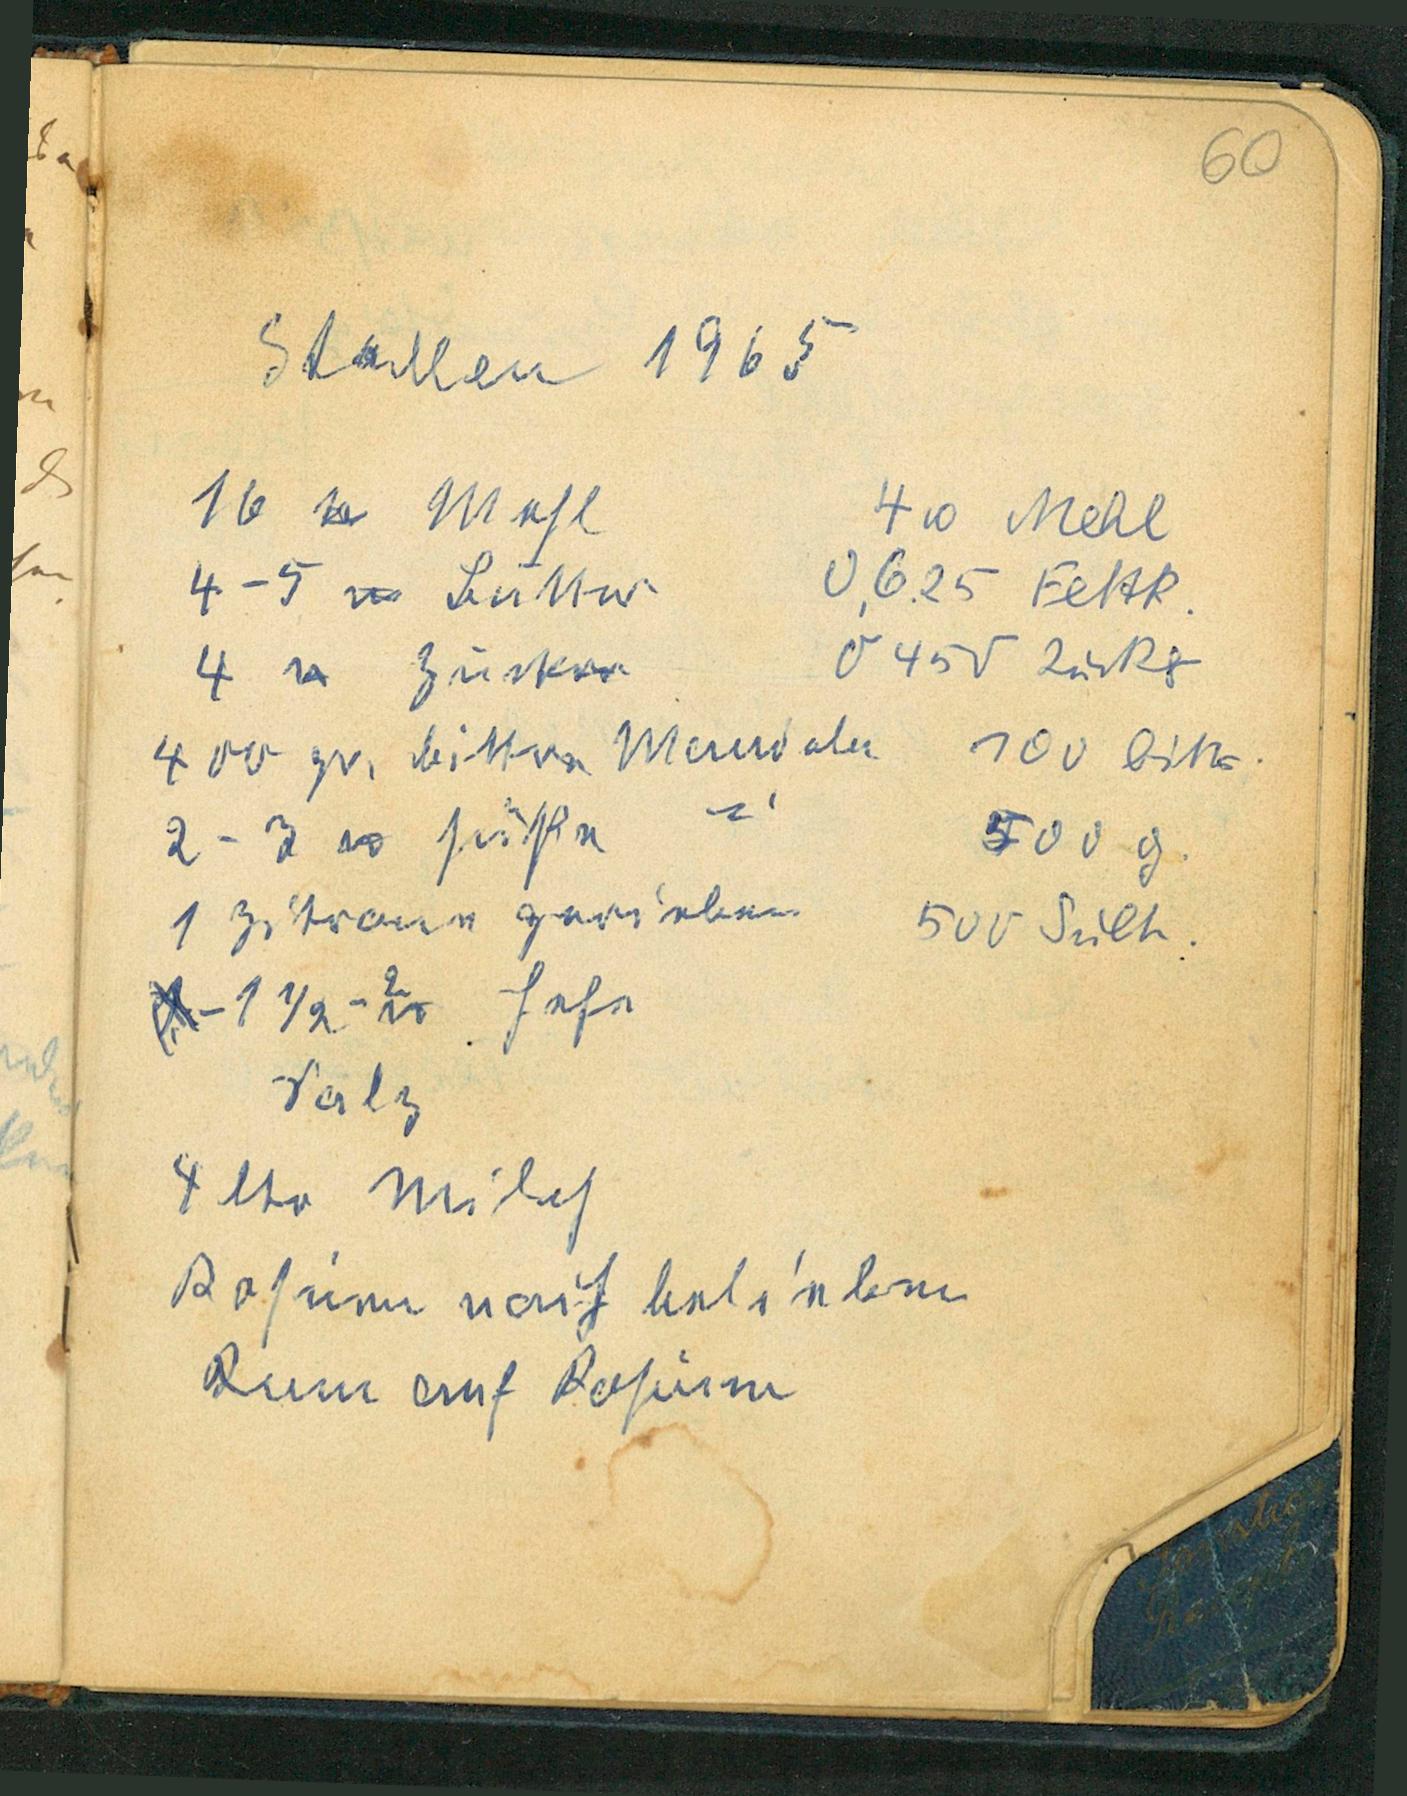 60
Stollen 1965
16 ℔ Mehl
4-5 ℔ Butter
4 ℔ Zucker
400 gr. bittere Mandeln
2-3 ℔ süße -"-
1 Zitrone gerieben
1 1/2-2 ℔ Hefe
Salz
4 ltr Milch
Rosinen nach belieben
Rum auf Rosinen
4 ℔ Mehl
0,625 Fett
0 450 Zucker
100 bitt.
500 g.
500 Sult.